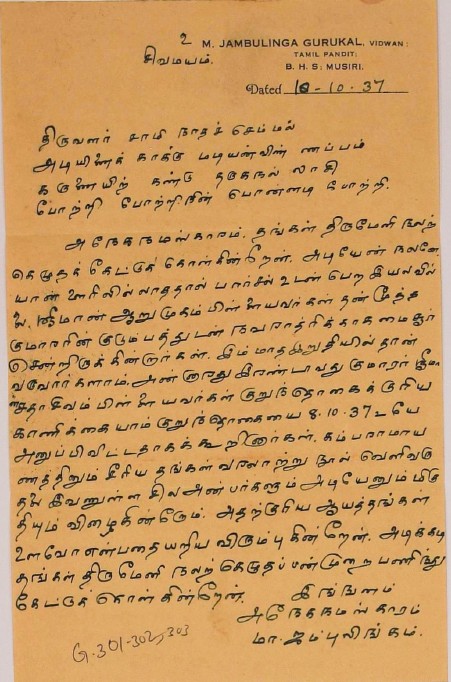 உ
சிவமயம்.
M. JAMBULINGA GURUKAL, VIDWAN:
TAMIL PANDIT:
B. H. S: MUSIRI.
Dated 10-10-37
திருவளர் சாமி நாதச் செம்மல்
அடியிணைக் காக்கு மடியன்விண் ணப்பம்
கருணையிற் கண்டு தருகநல் லாசி
போற்றி போற்றிநின் பொன்னடி போற்றி.
அநேகநமஸ்காரம். தங்கள் திருமேனி நலற்
கெழுதக் கேட்டுக் கொள்கின்றேன். அடியேன் நலனே.
யான் ஊரிலில்லாததால் பார்சல் உடன் பெற இயலவில்
லை. ஸ்ரீமான் ஆறுமுகம் பிள்ளையவர்கள் தன் மூத்த
குமாரரின் குடும்பத்துடன் நவராத்ரிக்காக மைசூர்
சென்றிருக்கின்றார்கள். இம்மாத இறுதியில்தான்
வருவார்களாம். அன்னாரது இரண்டாவது குமாரர் ஸ்ரீமா
ன் சதாசிவம் பிள்ளையவர்கள் குறுந்தொகைக் குரிய
காணிக்கையாம் குறுந்தொகையை 8.10.37-லேயே
அனுப்பிவிட்டதாகக் கூறினார்கள். கம்பராமாய
ணத்தினும் சீரிய தங்கள் வரலாற்று நூல் வெளிவரு
தலை இவணுள்ள சில அன்பர்களும் அடியேனும் மிகு
தியும் விழைகின்றோம். அதற்குரிய ஆயத்தங்கள்
உளவோ என்பதையறிய விரும்புகின்றேன். அடிக்கடி
தங்கள் திருமேனி நலற்கெழுதப் பன்முறை பணிந்து
கேட்டுக் கொள்கின்றேன்.
இங்ஙனம்
அநேகநமஸ்காரம்
மா. ஜம்புலிங்கம்.
G.301-302,303